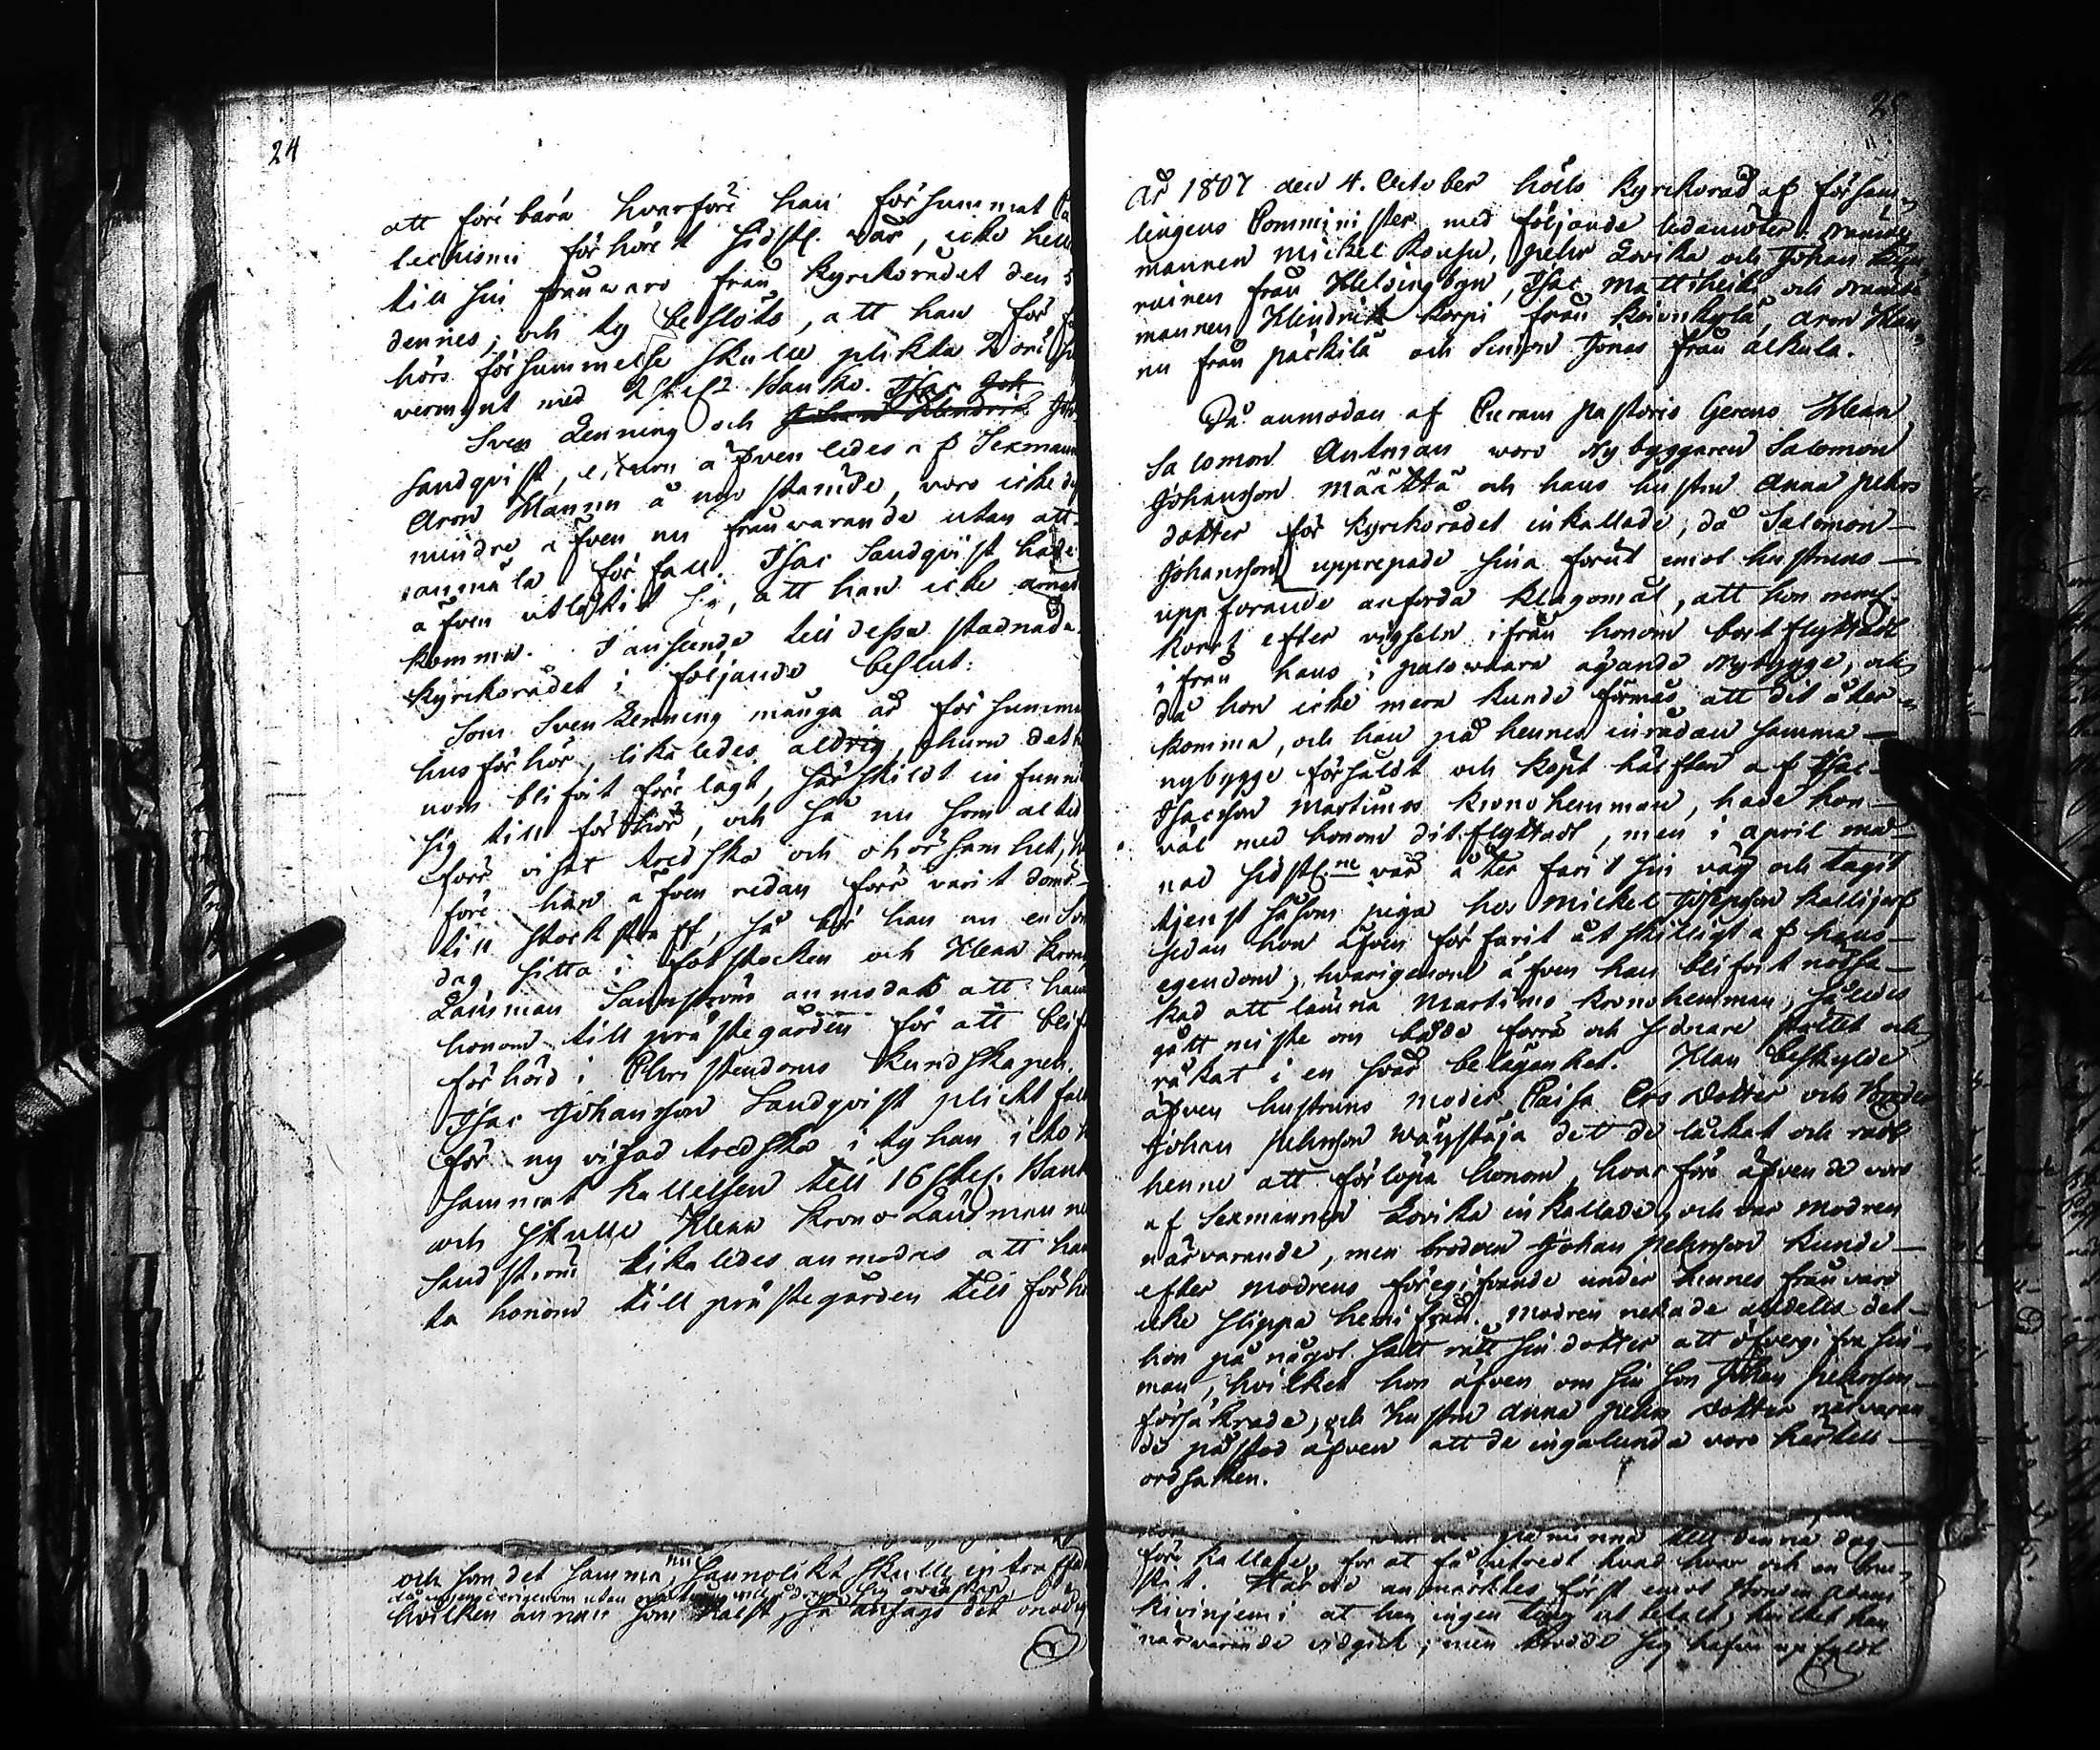 24
att förebära hvarföre han försummat
techismi förhöret sidstl. vår, icke hell
till sin frånvaro från Kyrkorådet den
dennes, och ty beslöts, att han för
hörs försummelse skulle plikta 2 öre
vermynt med 2 sk. Banko. Isac Joh
Sven Lenning och Johan Hendrik
Sandqvist, äfvenledes af Sexmann
Aron Mannu å nyo stämde, voro icke
mindre äfven nu frånvarande utan att
anmäla förfall. Isac Sandqvist hade
äfven utlåtit sig, att han icke ämn
komma. I anseende till dessa stadnade
Kyrkorådet i följande beslut:
Som Sven Lenning många år försumm
husförhör, likaledes aldrig, ehuru det
nom blifvit förelagt, särskildt infunnit
sig till förhör, och så nu som altid
förr visat tredska och ohörsamhet,
före han äfven redan förr varit dömd
till stockstraff, så bör han nu en Sön
dag sitta i fotstocken och Herr Krono
Länsman Sandström anmodas att häm
honom till prästegården för att blif
förhörd i Christendoms kundskapen.
Isac Johansson Sandqvist pliktfäll
för ny visad tredska i ty han icke
sammat kallelsen till 16 sk. Banko
och skulle Herr Krono Länsman
Sandström likaledes anmodas att häm
ta honom till prästegården till förhör
och som det samma nu sannolikt skulle inträffa
hvilken annan som hälst, så ansågs det onödig
25
År 1807 den 4. October hölls Kyrkoråd af försam-
lingens Comminister med följande ledamöter: Nämde
mannen Mickel Kousu, Pehr Lovika och Johan
niinen från Helsingbyn, Isac Mattiheiki och Nämde
mannen Hindrik Korpi från Koivukylä, Aron Man
nu från Päckilä och Simon Jönes från Alkula.
På anmodan af Curam Pastoris Gerens Herr
Salomon Antman voro Nybyggaren Salomon
Johansson Määttä och hans hustru Anna Pehrs
dotter för Kyrkorådet inkallade, då Salomon
Johansson upprepade sina förut emot hustruns
uppförande anförda klagomål, att hon
kort efter vigseln ifrån honom bortflyttadt
ifrån hans i Palowaara ägande Nybygge, och
då hon icke mera kunde förmås att dit åter-
komma, och han på hennes inrådan samma
nybygge försåldt och köpt hälften af Isac
Isacsson Martimos Kronohemman, hade hon
väl med honom ditflyttadt, men i April må-
nad sidstl.ne vår åter farit sin väg och tagit
tjenst såsom piga hos Mickel Josephsson Kallijerf
sedan hon äfven förfarit åtskilligt af hans
egendom, hvarigenom äfven han blifvit nödsa-
kad att lämna Martimo Kronohemman, således
gått miste om både förra och sednare stället och
råkat i en svår belägenhet. Han beskylde
äfven hustruns moder Caisa Ers Dotter och Broder
Johan Pehrsson Wäystäjä det de lockat och rådt
henne att förlöpa honom, hvarföre äfven de voro
af Sexmannen Lovika inkallade, och var modren
närvarande, men brodren Johan Pehrsson kunde
efter modrens föregifvande under hennes frånvaro
icke slippa hemifrån. Modren nekade alldeles det
hon på något sätt rått sin dotter att öfvergifva sin
man, hvilket hon äfven om sin son Johan Pehrsson
försäkrade, och hustru Anna Pehrs Dotter närvaran-
de påstod äfven att de ingalunda voro härtill
orsaken.
till denna dag
före kallade, för at få utredt hvad hvar och en bru-
stit. Härvid anmärktes först emot
Kivinjemi at han ingen ting ut betalt, hvilket han
närvarande vidgick, men trodde sig hafva upfyldt